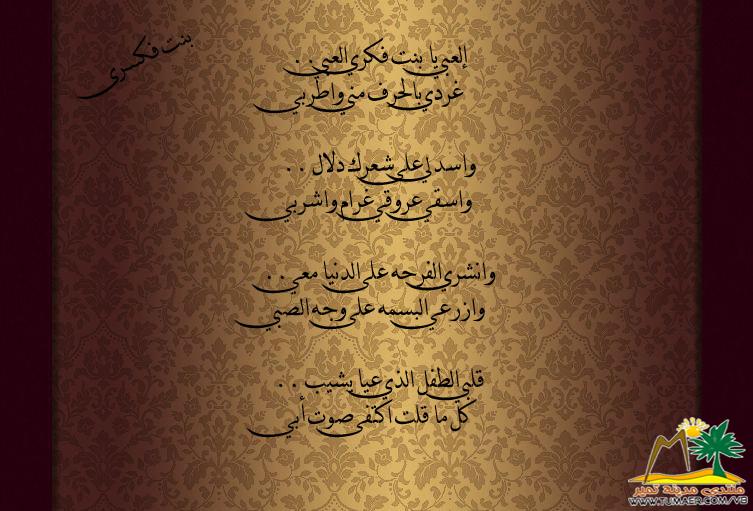 بنت فكري
إلعبي يا بنت فكري العبي . .
غردي بالحرف مني واطربي
واسدلي على شعرك دلال . .
واسقي عروقي غرام واشربي
وانشري الفرحه على الدنيا معي . .
وازرعي البسمه على وجه الصبي
قلبي الطفل الذي عيا يشيب . .
كل ما قلت اكتفى صوت أبي
منتدى مدينة تمير
WWW.TUMAER.COM/VB